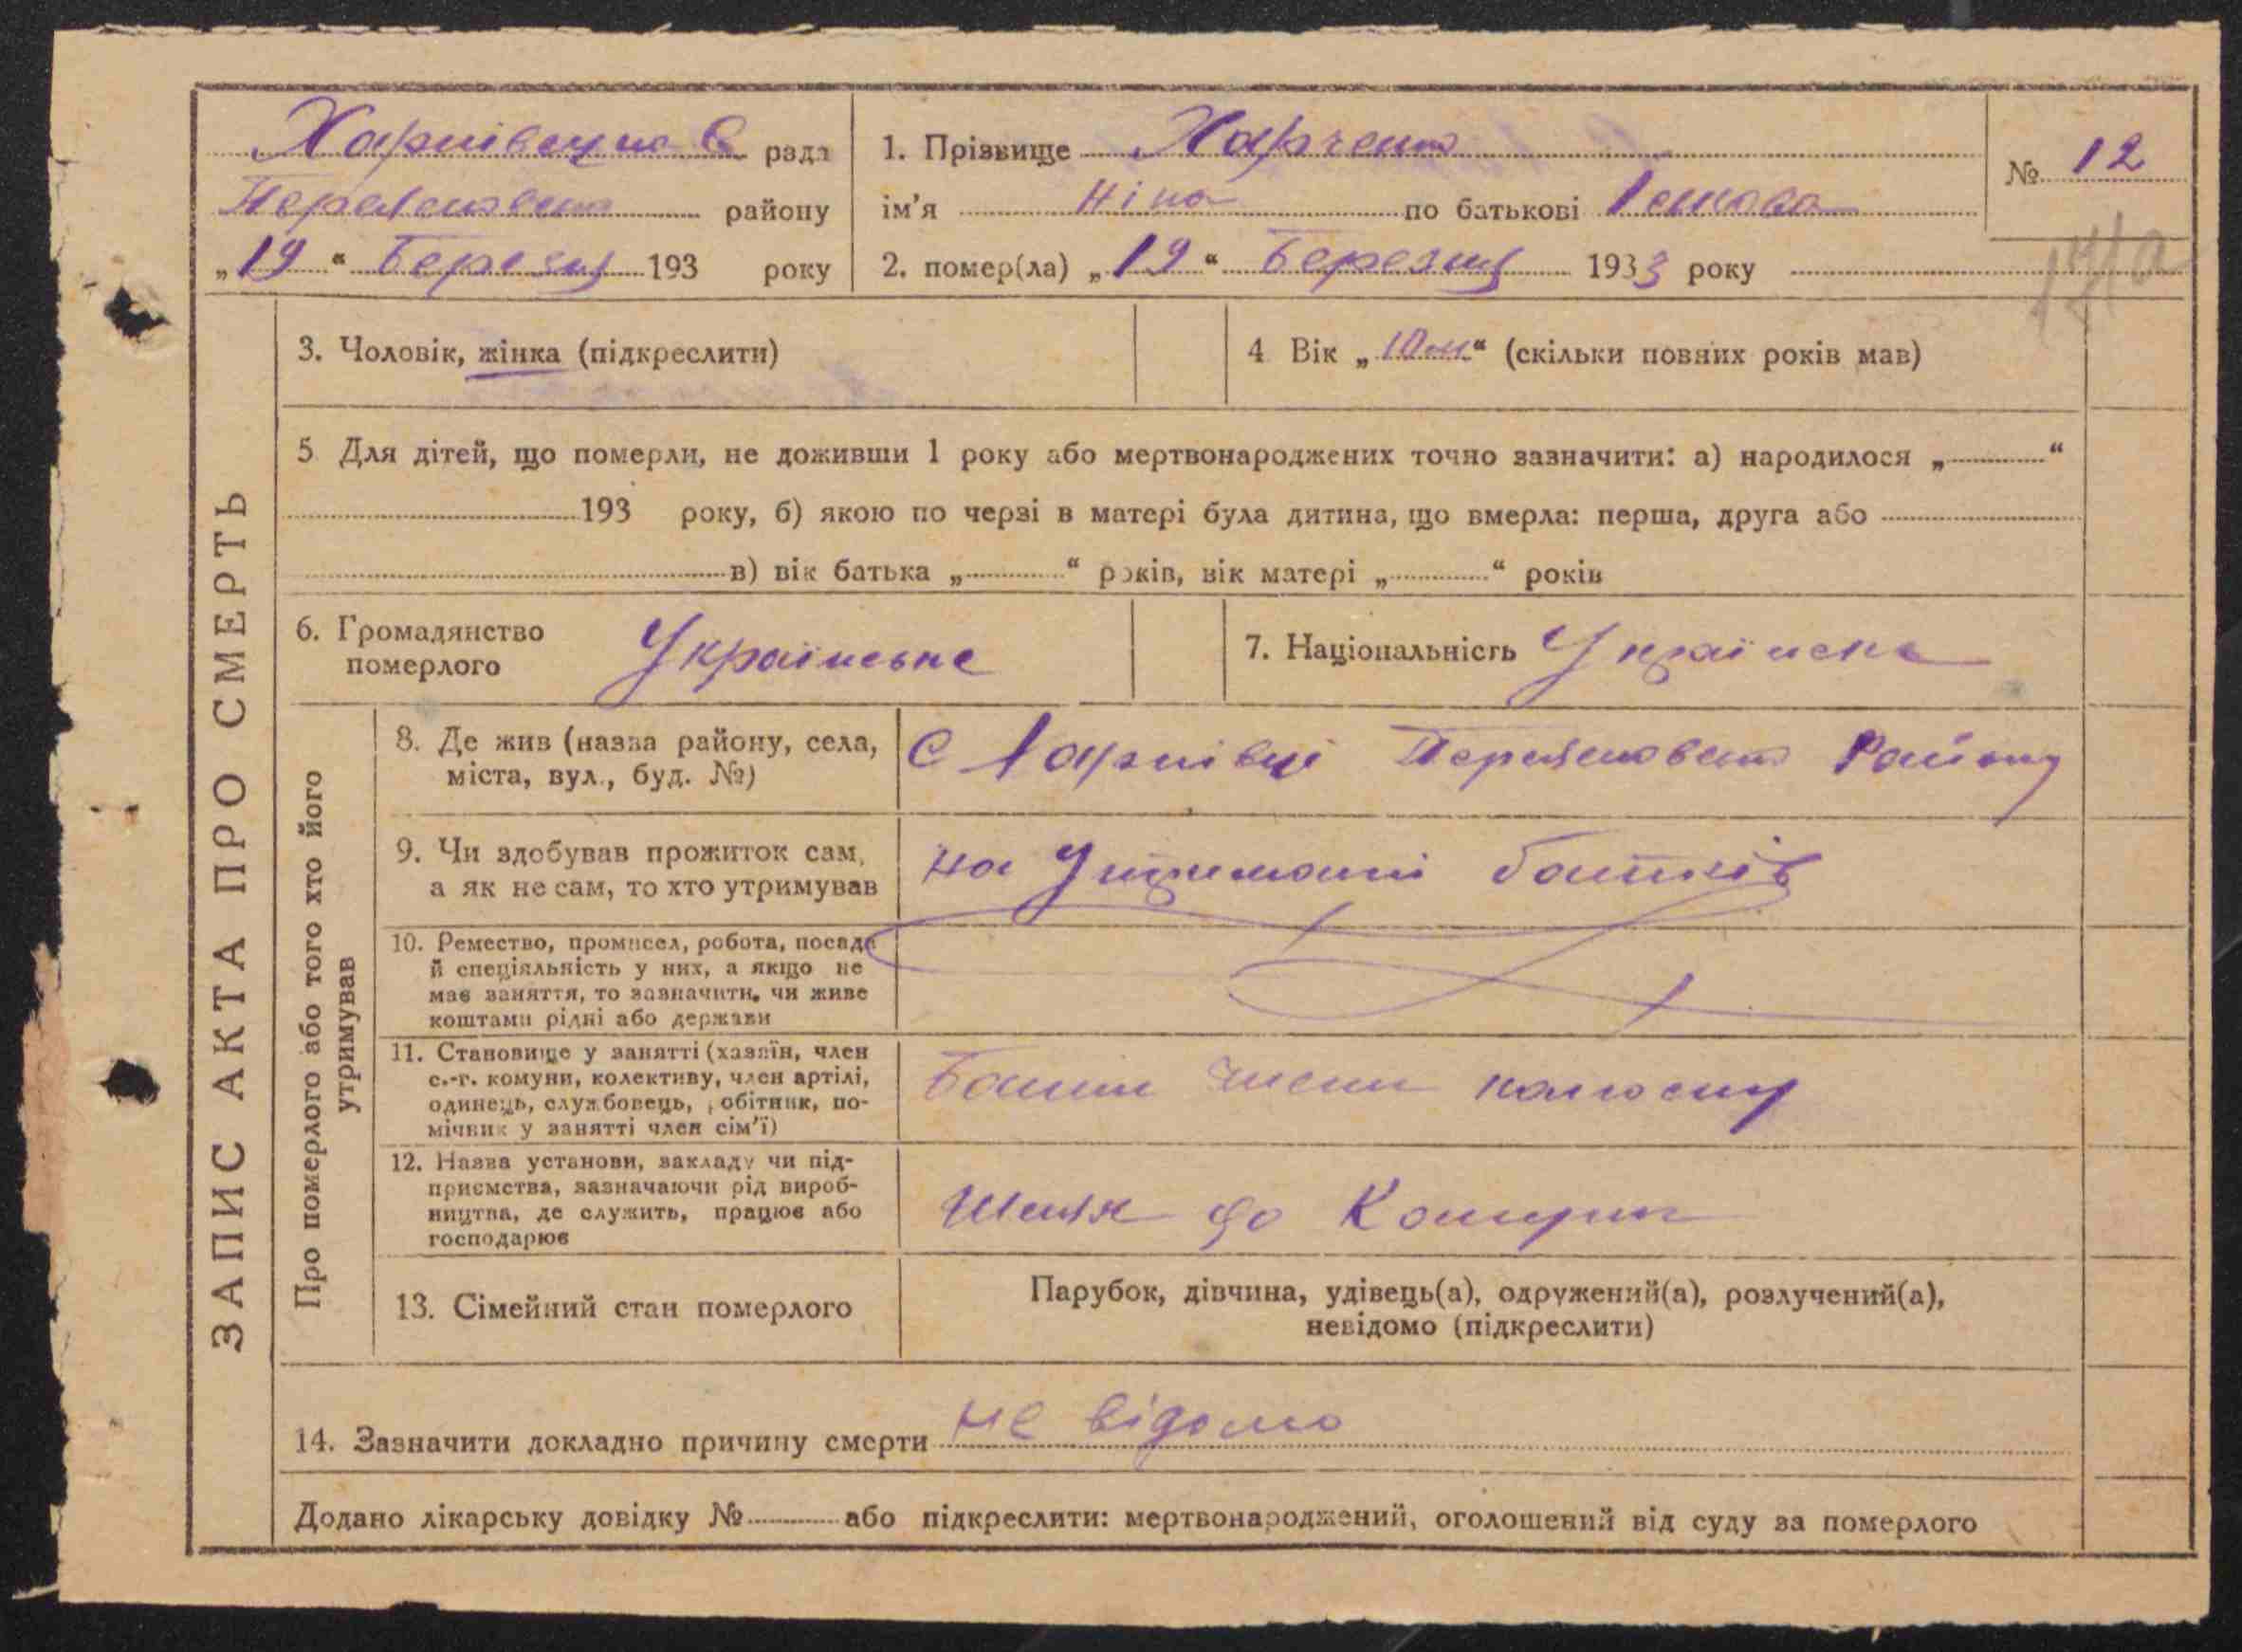 Харківецька С рада
району
„19“ Березня 193 року
1. Прізвище Харченко
ім’я Ніна по батькові
2. помер(ла) „19“ Березня 1933 року
№ 12
ЗАПИС АКТА ПРО СМЕРТЬ
3. Чоловік, жінка (підкреслити)
4 Вік „10м“ (скільки повних років мав)
5 Для дітей, що померли, не доживши 1 року або мертвонароджених точно зазначити: а) народилося „ “
193 року, б) якою по черзі в матері була дитина, що вмерла: перша, друга або
в) вік батька „ “ років, вік матері „ “ років
6. Громадянство
померлого
Українське
7. Національність Українська
Про померлого або того хто його
утримував
8. Де жив (назва району, села,
міста, вул., буд. №)
С Харківці Району
9. Чи здобував прожиток сам,
а як не сам, то хто утримував
на Утриманні батьків
10. Ремество, промисел, робота, посада
й спеціяльність у них, а якщо не
має заняття, то зазначити, чи живе
коштами рідні або держави
11. Становище у занятті (хазяїн, член
с.-г. комуни, колективу, член артілі,
одинець, службовець, робітник, по-
мічник у занятті член сім’ї)
Батьки члени колгоспу
12. Назва установи, закладу чи під-
приємства, зазначаючи рід вироб-
ництва, де служить, працює або
господарює
Шлях до Комуни
13. Сімейний стан померлого
Парубок, дівчина, удівець(а), одружений(а), розлучений(а),
невідомо (підкреслити)
14. Зазначити докладно причину смерти не відомо
Додано лікарську довідку № або підкреслити: мертвонароджений, оголошений від суду за померлого